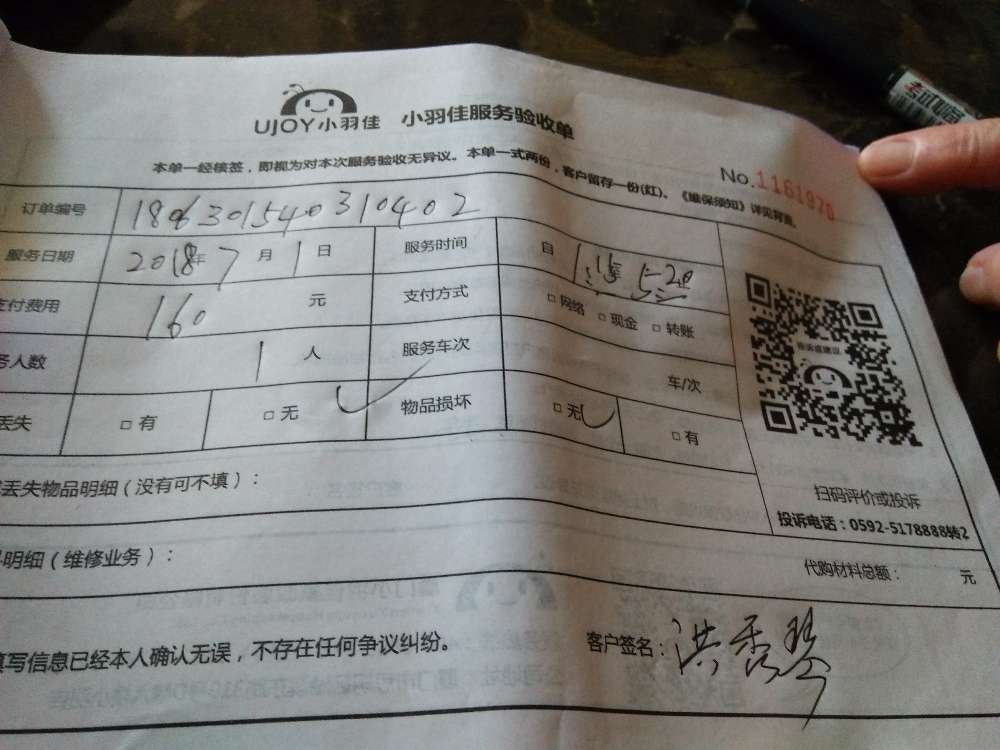 UJOY小羽佳 小羽佳服务验收单
本单一经核签，即视为对本次服务验收无异议。本单一式两份，客户留存一份(红)。《维保须知》详见背面。
No.1161970
订单编号 180630154031 0402
服务日期 2018年7月1日 服务时间 自
支付费用 160 元 支付方式 □网络 □现金 □转账
务人数 1人 服务车次 车/次
丢失 □有 □无 物品损坏 □无 □有
丢失物品明细（没有可不填）：
扫码评价或投诉
投诉电话：0592-5178888转2
明细（维修业务）： 代购材料总额： 元
填写信息已经本人确认无误，不存在任何争议纠纷。 客户签名：洪秀琴